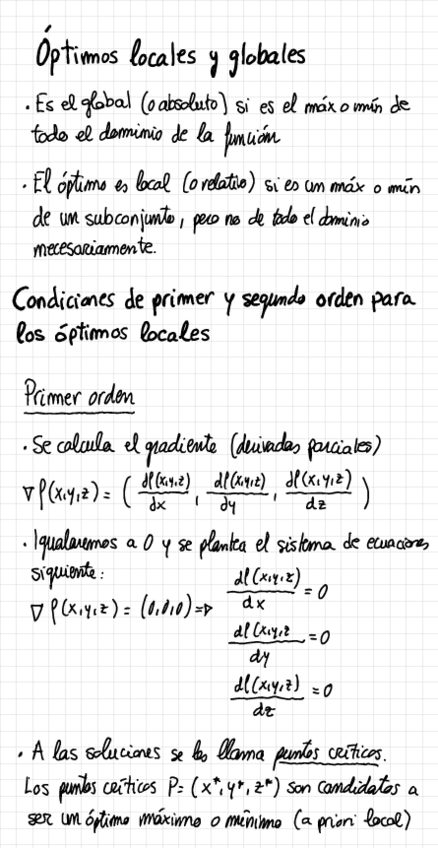 Óptimos locales y globales
· Es el global (o absoluto) si es el máx o mín de
todo el dominio de la función
· El óptimo es local (o relativo) si es un máx o mín
de un subconjunto, pero no de todo el dominio
necesariamente.
Condiciones de primer y segundo orden para
los óptimos locales
Primer orden
· Se calcula el gradiente (derivadas parciales)
∇f(x,y,z) = ( df(x,y,z)/dx , df(x,y,z)/dy , df(x,y,z)/dz )
· Igualaremos a 0 y se plantea el sistema de ecuaciones
siguiente:
∇f(x,y,z) = (0,0,0) => df(x,y,z)/dx = 0
df(x,y,z/dy = 0
df(x,y,z)/dz = 0
· A las soluciones se les llama puntos críticos.
Los puntos críticos P = (x*, y*, z*) son candidatos a
ser un óptimo máximo o mínimo (a priori local)